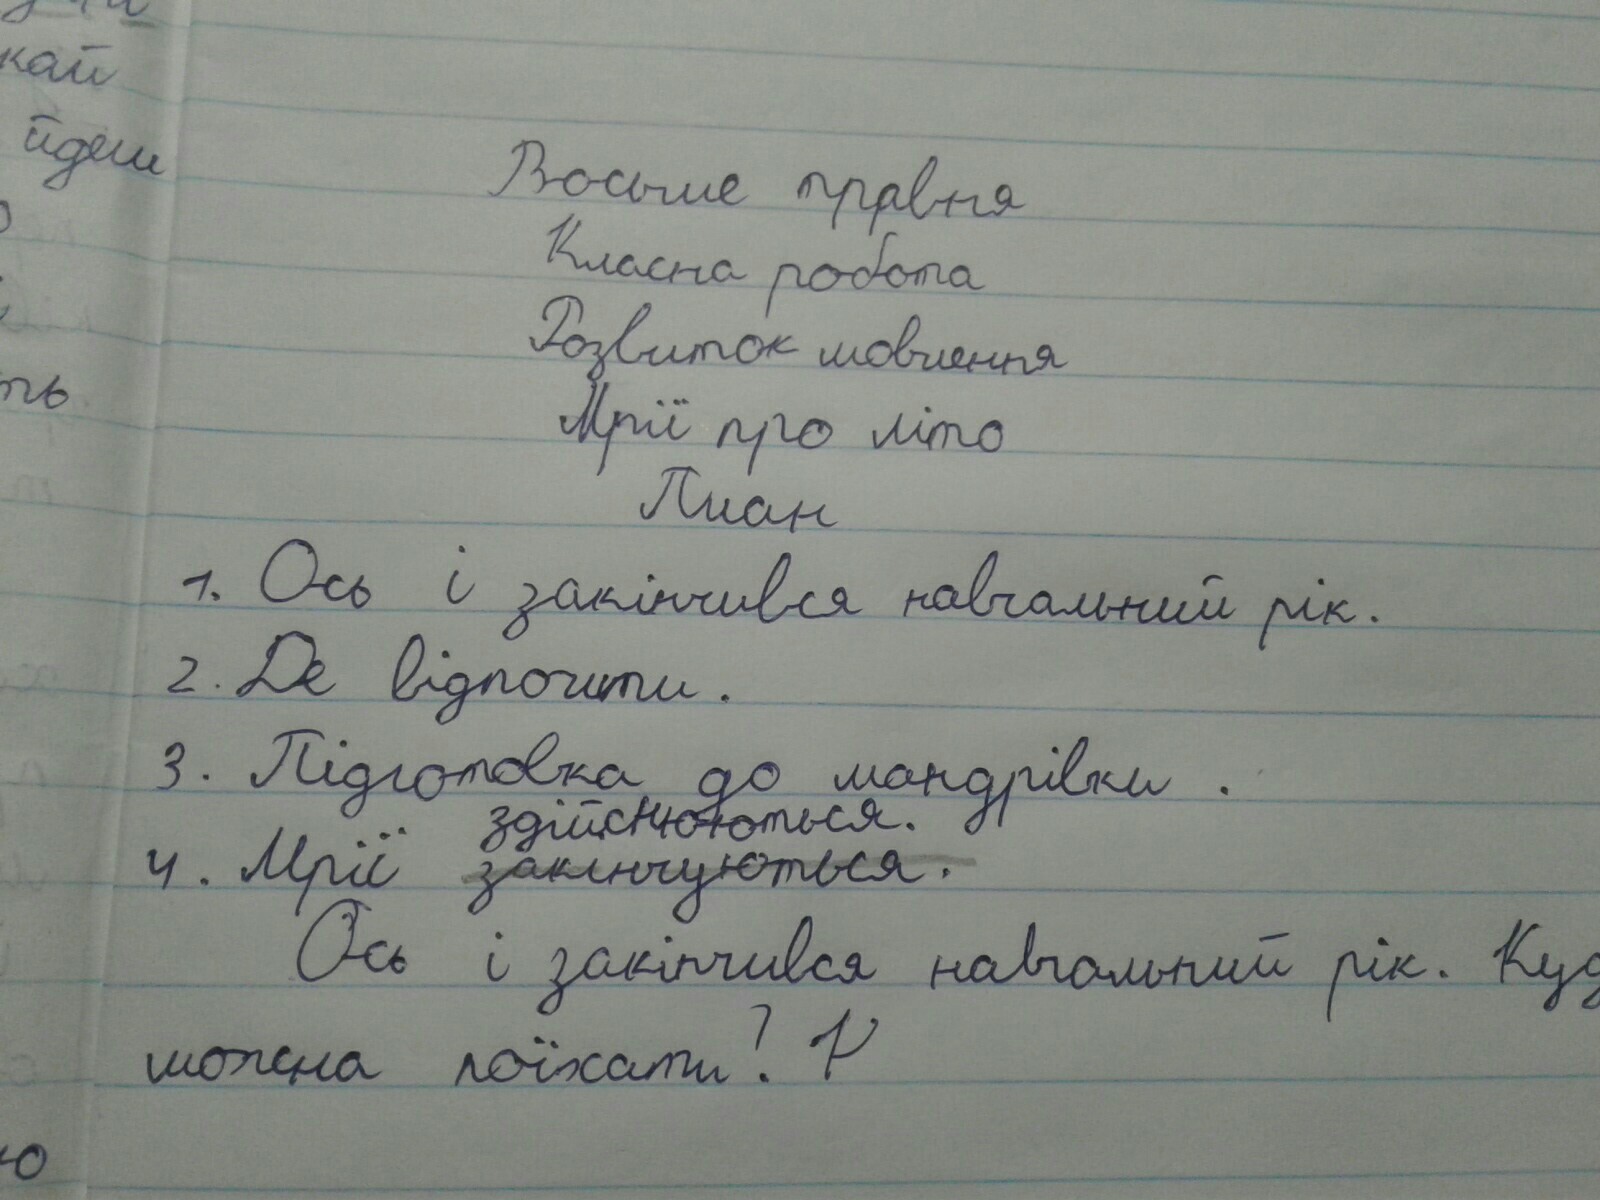 кай
йдеш
Восьме травня
Класна робота
Розвиток мовлення
ть
Мрії про літо
План
1. Ось і закінчився навчальний рік.
2. Де відпочити.
3. Підготовка до мандрівки.
здійснюються.
4. Мрії закінчуються.
Ось і закінчився навчальний рік. Куд
можна поїхати? К
ю